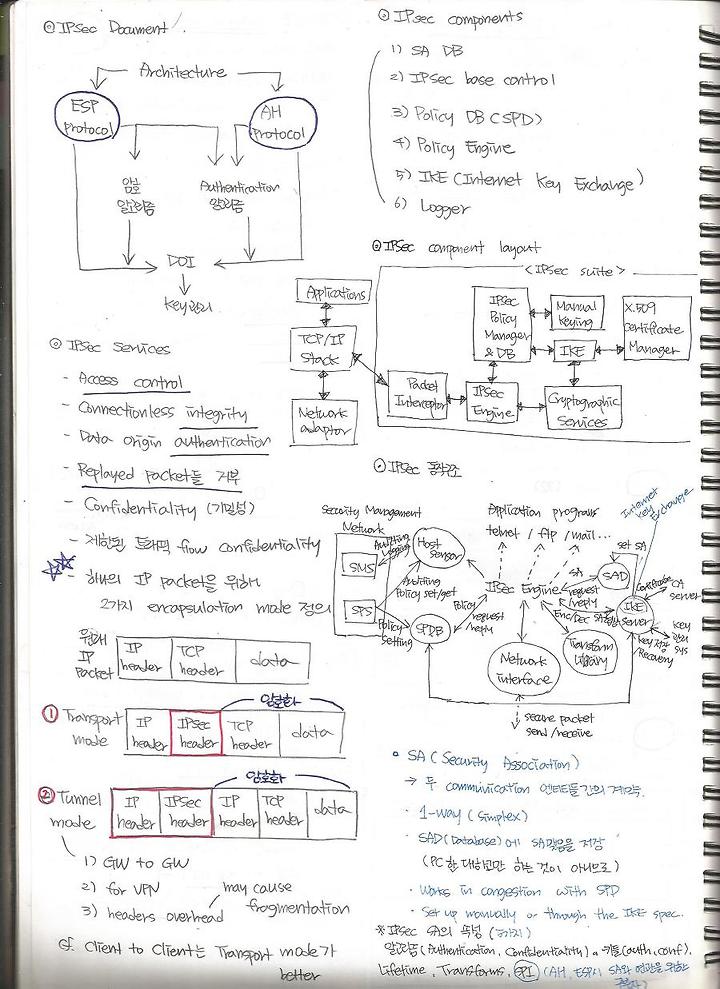 ⊙ IPsec Document.
Architecture
ESP
Protocol
AH
Protocol
암호
알고리즘
Authentication
알고리즘
DOI
Key관리
⊙ IPsec Services
- Access control
- Connectionless integrity
- Data origin authentication
- Replayed packet들 거부
- Confidentiality (기밀성)
- 제한된 트래픽 flow confidentiality
- 하나의 IP packet을 위해
2가지 encapsulation mode 정의
원래
IP
Packet
IP
header
TCP
header
data
암호화
① Transport
mode
IP
header
IPsec
header
TCP
header
data
암호화
② Tunnel
mode
IP
header
IPsec
header
IP
header
TCP
header
data
1) GW to GW
2) for VPN
3) headers overhead
may cause
fragmentation
cf. Client to Client는 Transport mode가
better
⊙ IPsec components
1) SA DB
2) IPsec base control
3) Policy DB (SPD)
4) Policy Engine
5) IKE (Internet Key Exchange)
6) Logger
⊙ IPSec component layout
< IPSec suite >
Applications
TCP/IP
Stack
Network
adaptor
Packet
Interceptor
IPSec
Policy
Manager
& DB
IPSec
Engine
Manual
Keying
IKE
Cryptographic
Services
X.509
Certificate
Manager
⊙ IPsec 동작구조
Security Management
Network
SMS
SPS
Auditing
Logging
Host
Sensor
Auditing
Policy set/get
Policy
Setting
SPDB
Policy
request
/reply
Application programs
telnet / ftp / mail...
IPSec Engine
SA
request
/reply
Enc/Dec
set SA
SAD
Internet
Key Exchange
IKE
Server
Certificate
CA
Server
Key
관리
sys
Key 저장
Recovery
Network
interface
Transform
Library
secure packet
send/receive
∘ SA (Security Association)
→ 두 communication 엔티티들간의 계약.
· 1-way (Simplex)
· SAD(Database)에 SA묶음을 저장
(PC 한 대하고만 하는 것이 아니므로)
· Works in congestion with SPD
· Set up manually or through the IKE spec.
※ IPsec SA의 속성
알고리즘(Authentication, Confidentiality), 키들(auth, conf).
Lifetime, Transforms, SPI (AH, ESP시 SA와 연관을 위한